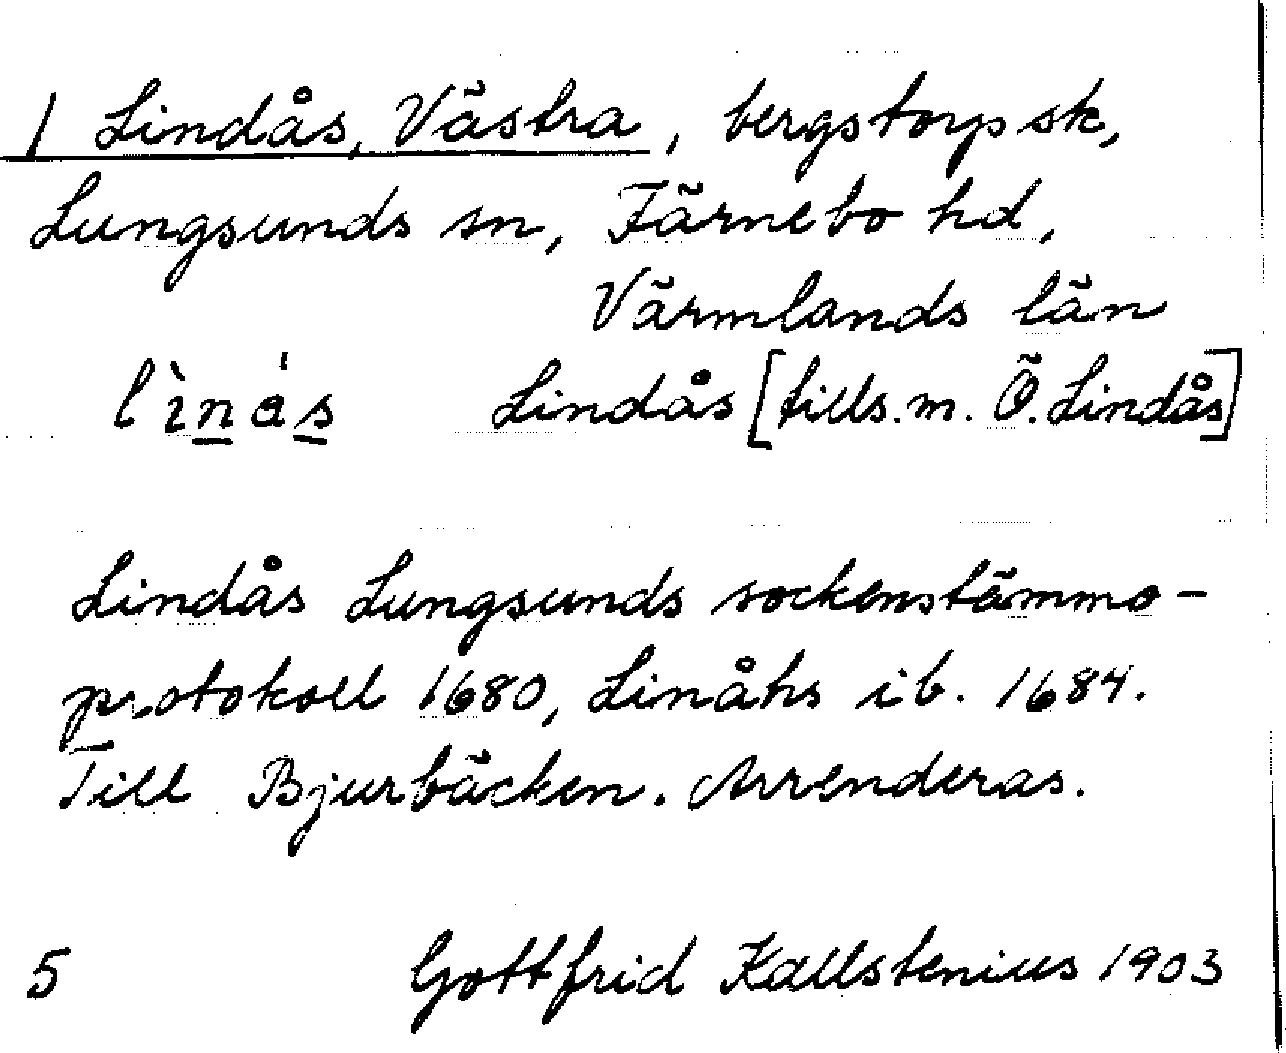 1 Lindås, Västra, bergstorpsk,
Lungsunds sn, Färnebo hd,
Värmlands län
lìnás Lindås [tills. m. Ö. Lindås]
Lindås Lungsunds sockenstämmo-
protokoll 1680, Linåhs ib. 1684.
Till Bjurbäcken. Arrenderas.
5 Gottfrid Kallstenius 1903